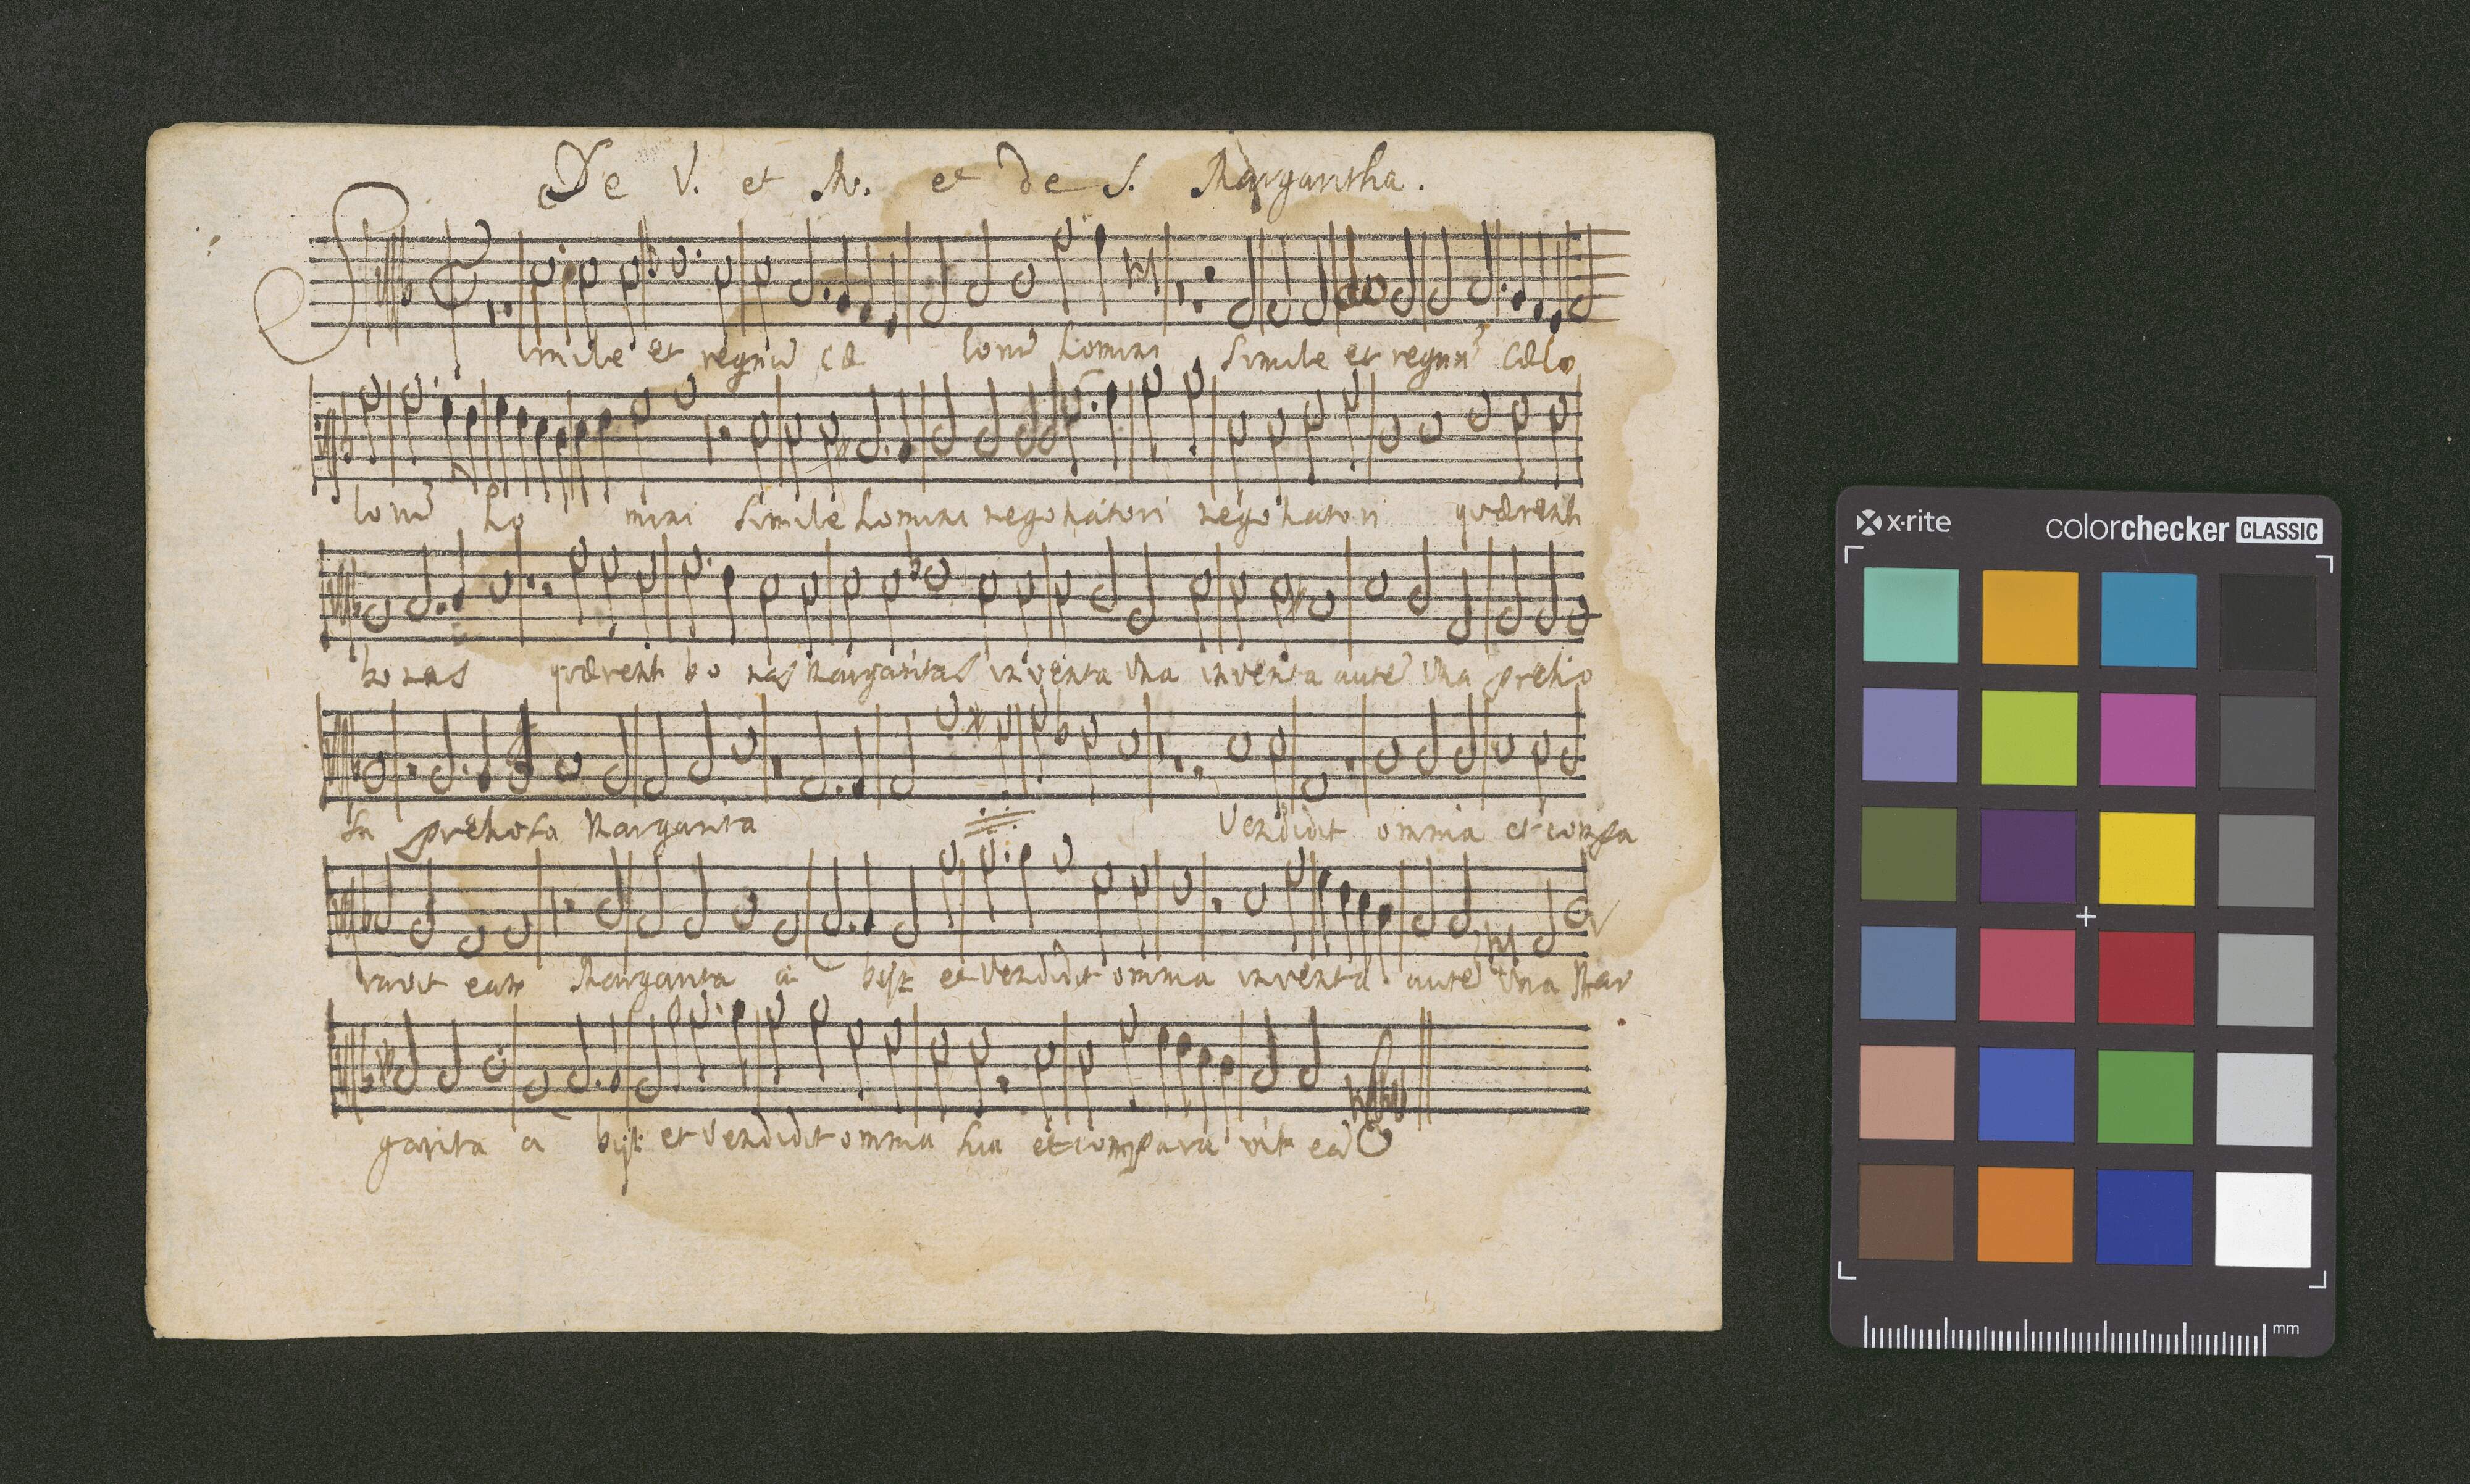 De V. et M. et de S. Margaritha.
Simile est regnũ cæ lorũ homini Simile est regnũ cælo
lorũ ho mini Simile homini negotiatori negotiatori quærenti
bonas quærenti bo nas Margaritas inventa Una inventa autẽ Una pretio
sa pretiosa Margarita Vendidit omnia et compa
ravit eam Margarita a bijt et Vendidit omnia inventa autẽ Una Mar
garita a bijt et Vendidit omnia sua et compara vit eã
x·rite colorchecker CLASSIC
mm